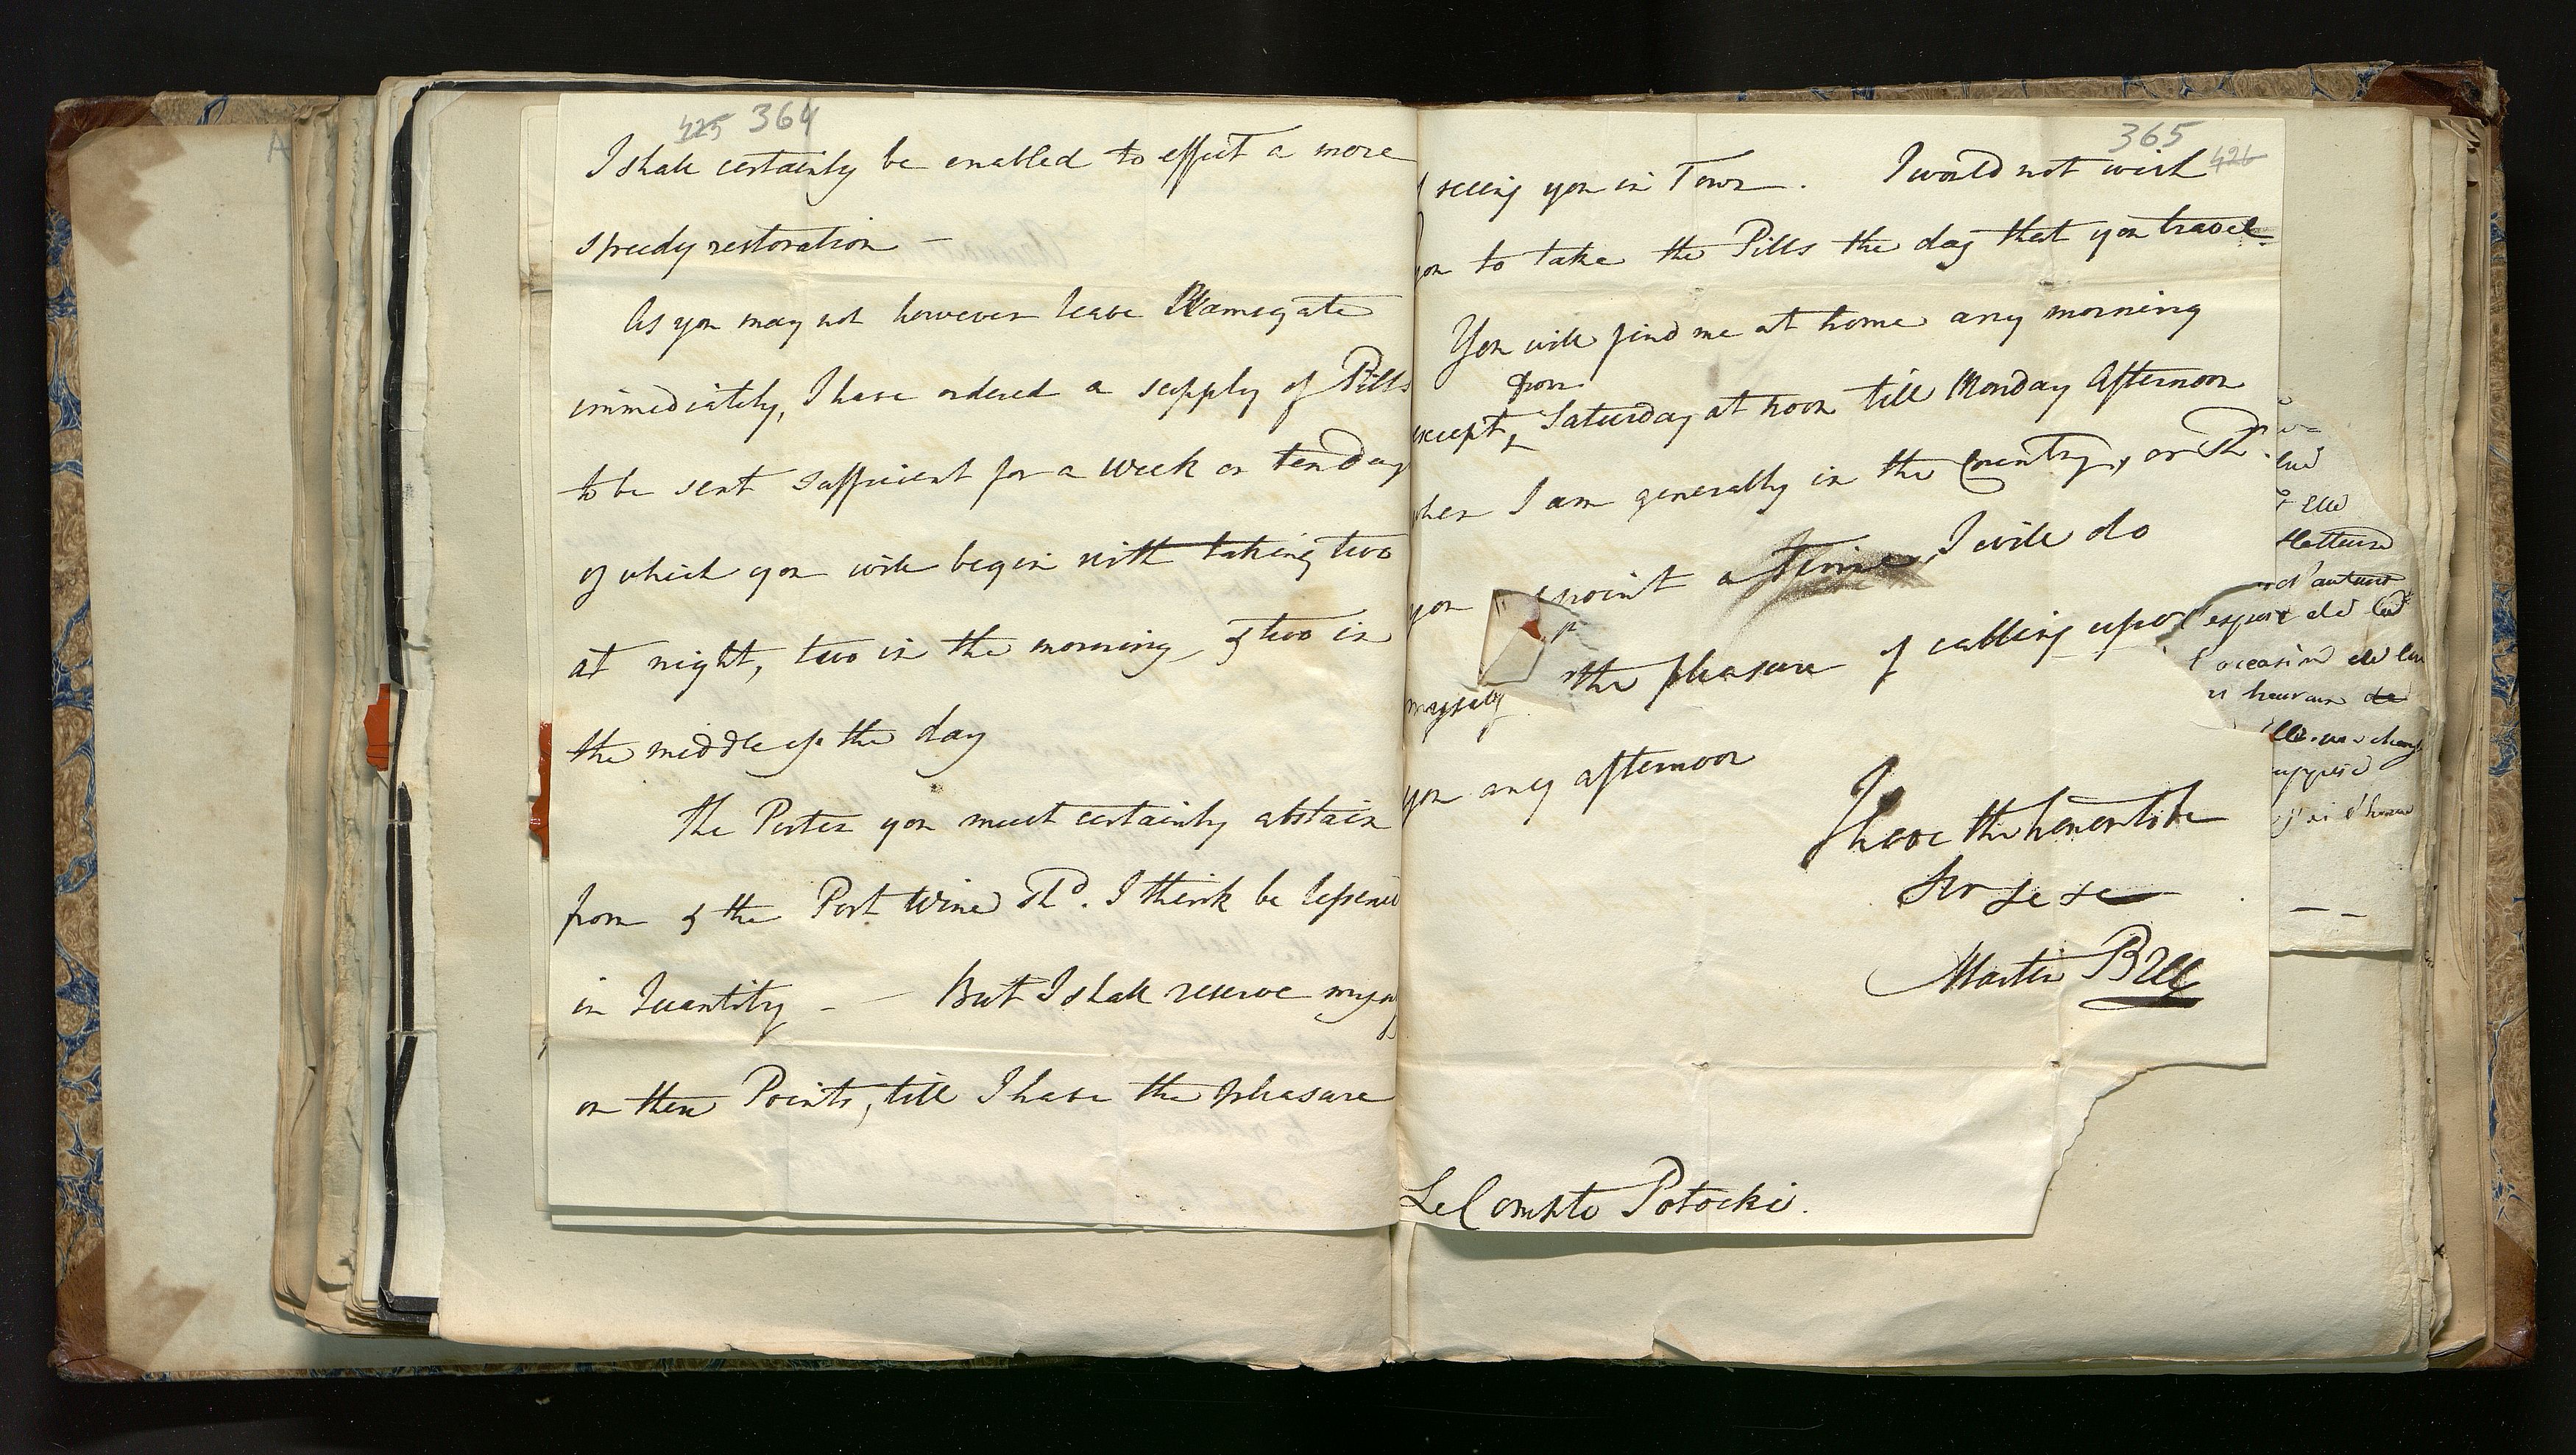 425 364
I shall certainly be enabled to effect a more
speedy restoration —
As you may not however leave Ramsgate
immediately, I have ordered a supply of Pills
to be sent sufficient for a Week or ten Day
of which you will begin with taking two
at night, two in the morning, & two in
the middle of the day
The Porter you must certainly abstain
from & the Port Wine Shd. I think be lessened
in Quantity — — But I shall reserve myself
on these Points, till I have the pleasure
365 426
seeing you in Town. I would not wish
you to take the Pills the day that you travel.
You will find me at home any morning
from
except Saturday at noon till Monday Afternoon
when I am generally in the Country, or Shd
you point a time, I will do
myself the pleasure of calling upon
you any afternoon
I have the honor to be
Sir &c &c
Martin Bree
Le Compte Potocki.
elle
flatteuse
d'autant
l'occasion de
heureux de